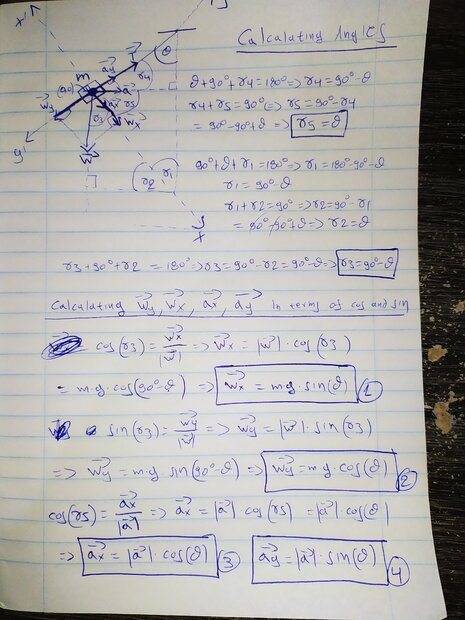 Calculating Angles
x'
T
θ
m
ay
r4
90
a
ax
r5
wx
wy
r3
y'
w
r2 r1
x
ϑ+90°+r4=180° => r4=90°-ϑ
r4+r5=90° => r5=90°-r4
=90°-90°+ϑ => r5=ϑ
90°+ϑ+r1=180° => r1=180°-90°-ϑ
r1=90°-ϑ
r1+r2=90° => r2=90°-r1
=90°-90°+ϑ => r2=ϑ
r3+90°+r2 =180° => r3=90°-r2=90°-ϑ => r3=90°-ϑ
Calculating wy, wx, ax, ay in terms of cos and sin
cos(r3)=wx/|w| => wx=|w|·cos(r3)
=m·g·cos(90°-ϑ) => wx=m·g·sin(ϑ) 1
sin(r3)=wy/|w| => wy=|w|·sin(r3)
=> wy=m·g sin(90°-ϑ) => wy=m·g cos(ϑ) 2
cos(r5)=ax/|a| => ax=|a| cos(r5) =|a|·cos(ϑ)
=> ax=|a|·cos(ϑ) 3 ay=|a|·sin(ϑ) 4